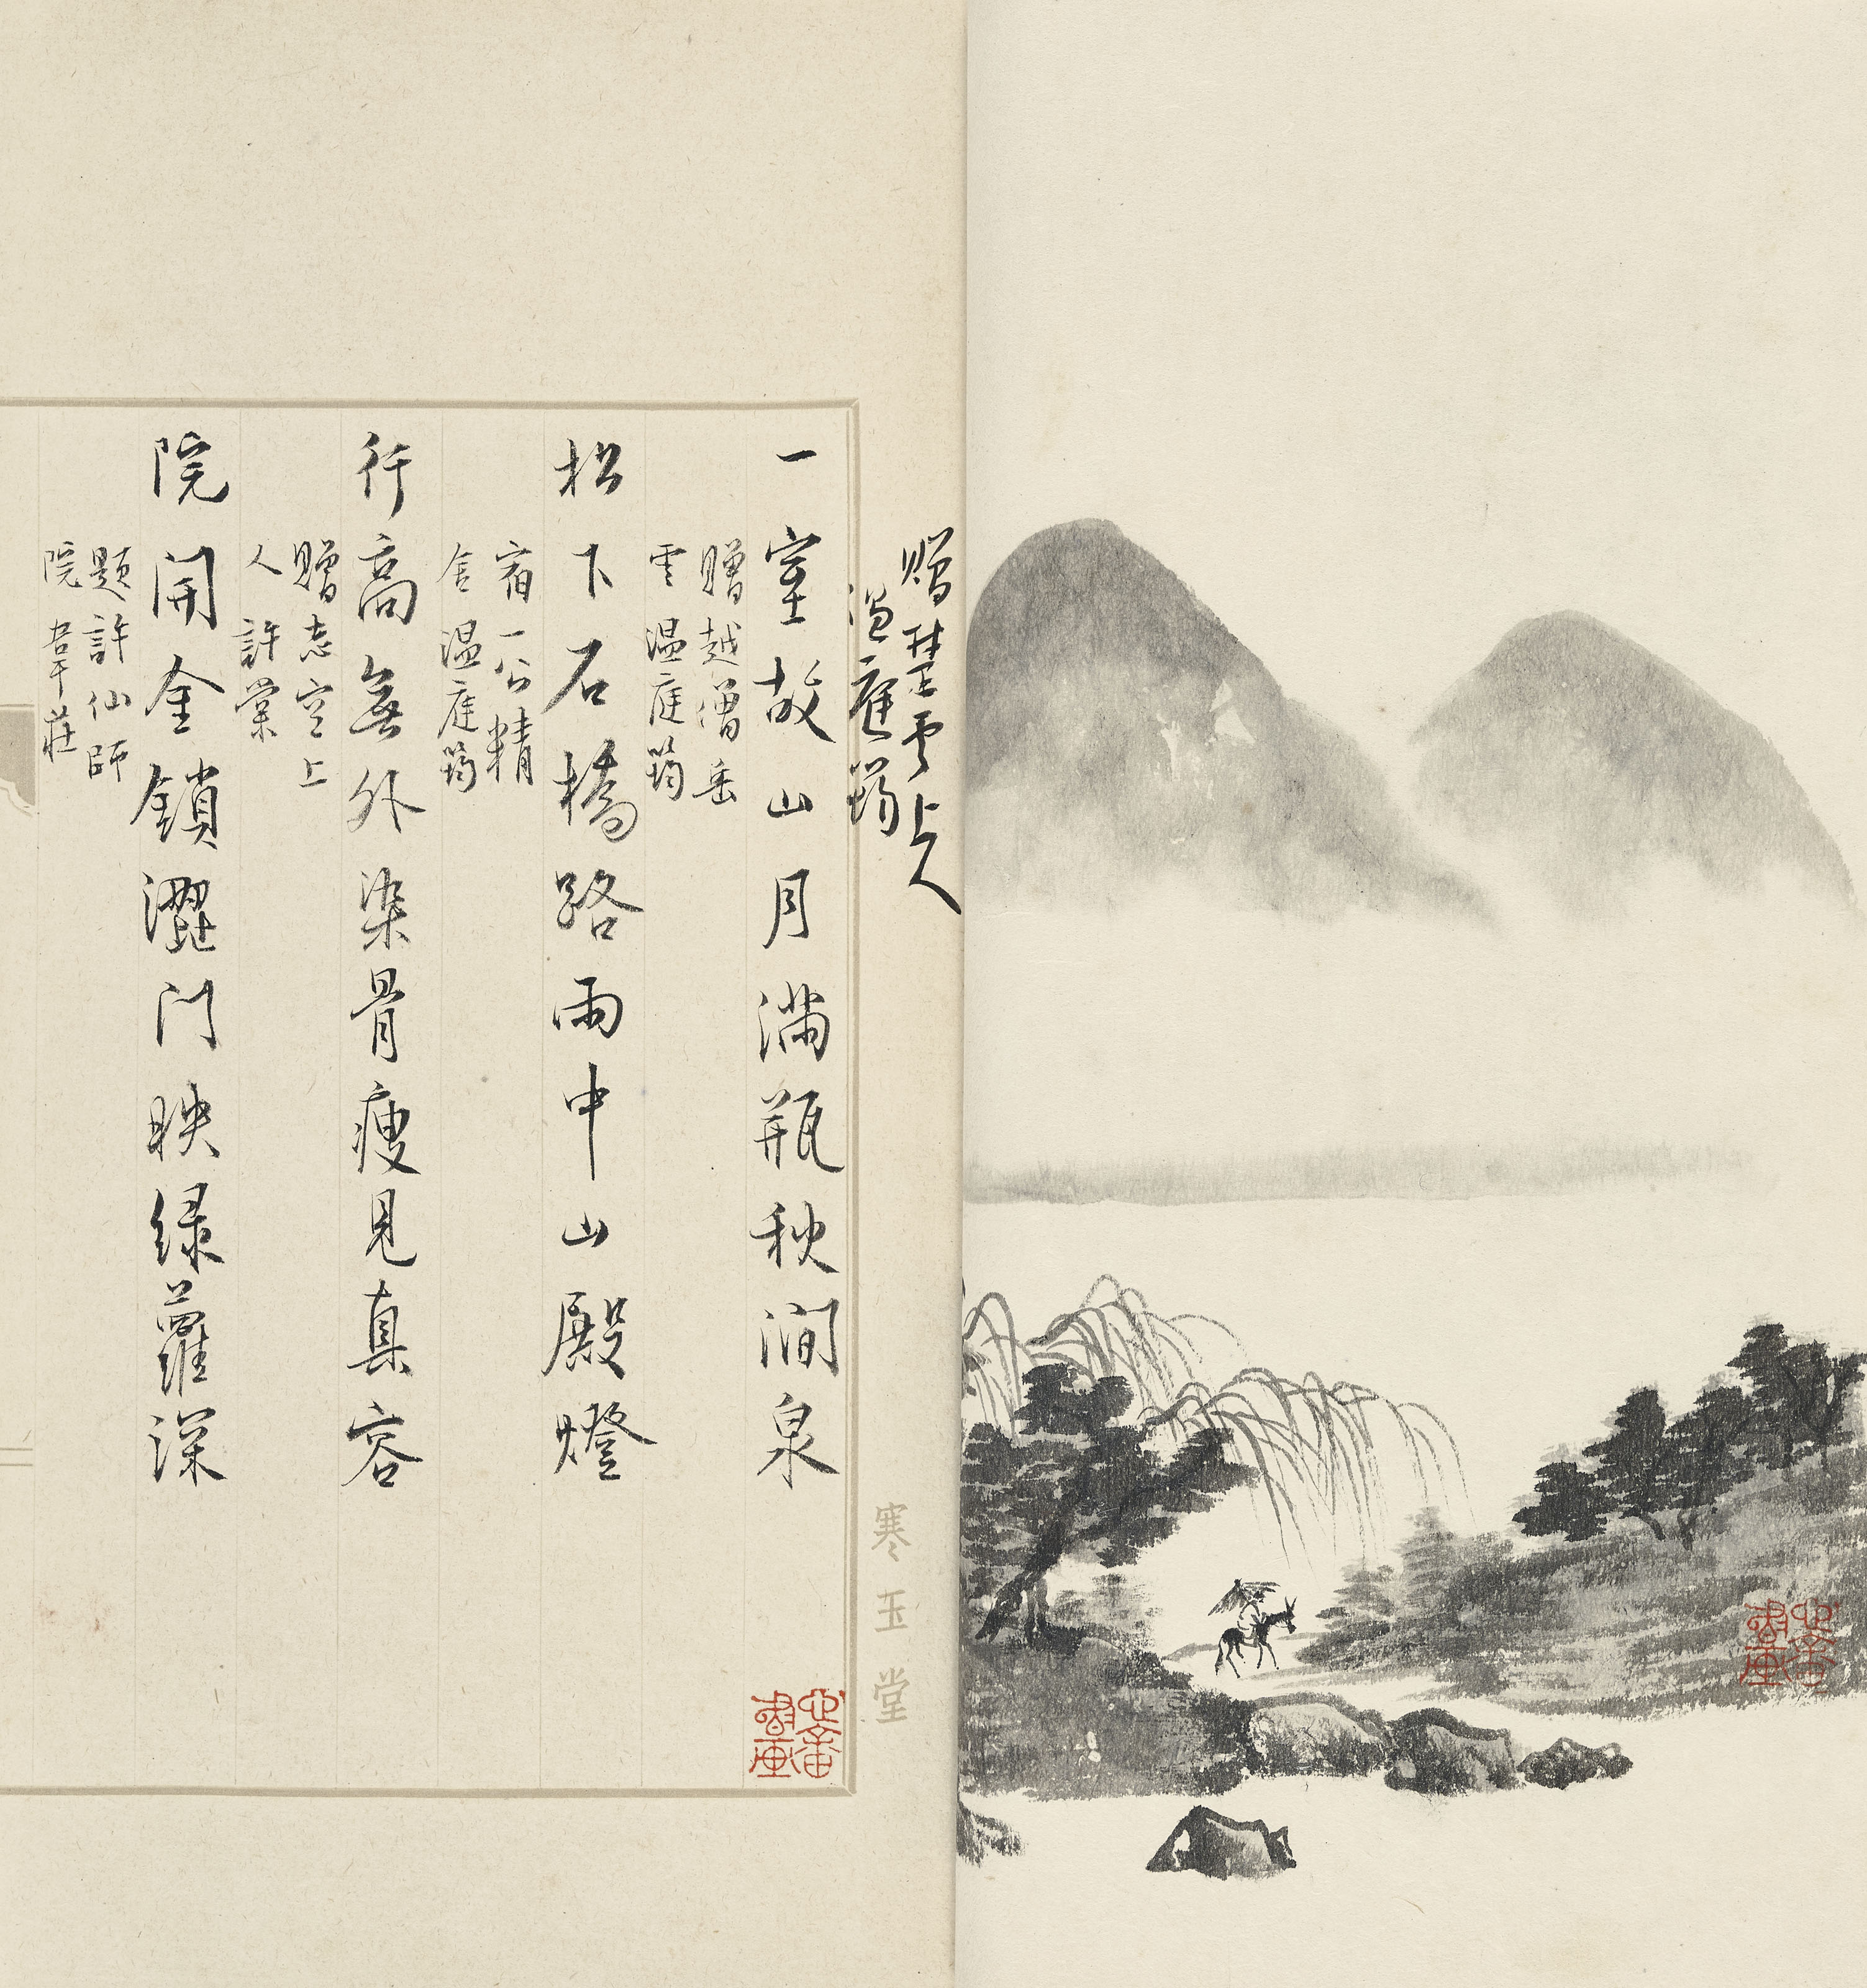 贈楚雲上人
溫庭筠
一室故山月滿瓶秋澗泉
贈越僧岳
雲 温庭筠
松下石橋路雨中山殿燈
宿一公精
舍 温庭筠
行高無外染骨瘦見真容
贈志空上
人 許棠
院開金鎖澀門映綠蘿深
題許仙師
院 韋莊
寒玉堂
心畬書畫
心畬書畫